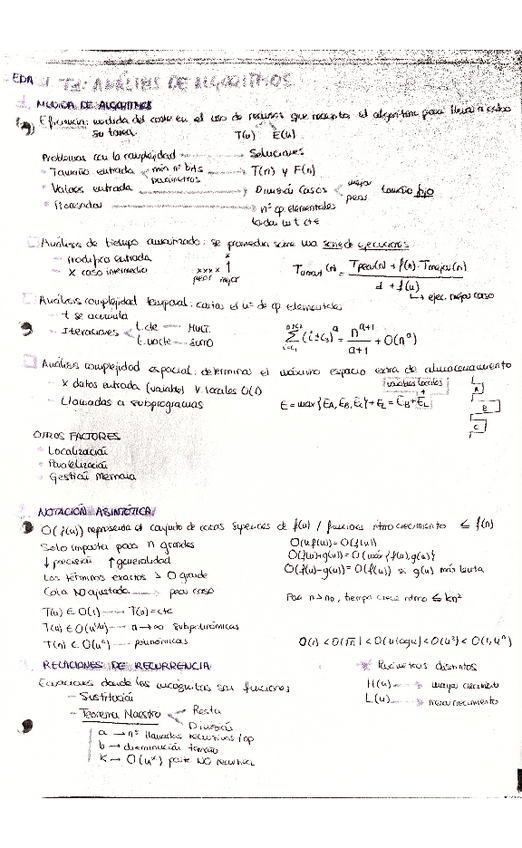 EDA T1: ANÁLISIS DE ALGORITMOS
MEDIDA DE ALGORITMOS
Eficiencia: medida del coste en el uso de recursos que necesita el algoritmo para llevar a cabo
su tarea T(n) E(n)
Problemas con la complejidad Soluciones
Tamaño entrada min nº bits T(n) y F(n)
parámetros
Valores entrada División casos mejor tamaño fijo
peor
nº op elementales
todas las t cte
Análisis de tiempo amortizado: se promedia sobre una serie de ejecuciones
- modifica entrada
- X caso intermedio xxxx 1 x
peor mejor
Tamort(n) = Tpeor(n) + f(n) · Tmejor(n) / 1 + f(n)
→ ejec. mejor caso
Análisis complejidad temporal: contar el nº de op elementales
- t se acumula
- Iteraciones t.cte MULT.
t.nocte SUMO
Análisis complejidad espacial: determinar el máximo espacio extra de almacenamiento
- X datos entrada (variable) V. locales O(1) variables locales
- Llamadas a subprogramas E = max{EA, EB, EC} + EL = EB + EL
A
B
C
OTROS FACTORES
Localización
Paralelización
Gestión Memoria
NOTACIÓN ASINTÓTICA
O(f(n)) representa el conjunto de cotas superiores de f(n) / funciones ritmo crecimiento ≤ f(n)
Solo importa para n grandes O(k f(n)) = O(f(n))
↓ precisión ↑ generalidad O(f(n)+g(n)) = O(máx{f(n), g(n)})
Los términos exactos > O grande O(f(n)-g(n)) = O(f(n)) si g(n) más lenta
Cota NO ajustada peor caso
T(n) ∈ O(1) T(n) = cte
T(n) ∈ O(n^1/k) n→∞ subpolinómicas
T(n) ∈ O(n^k) polinómicas
RELACIONES DE RECURRENCIA
Ecuaciones donde las incógnitas son funciones
- Sustitución
- Teorema Maestro Resta
División
a → nº llamadas recursivas / op
b → disminución tamaño
k → O(n^k) parte NO recursiva
Parámetros distintos
H(n) mayor crecimiento
L(n) menor crecimiento